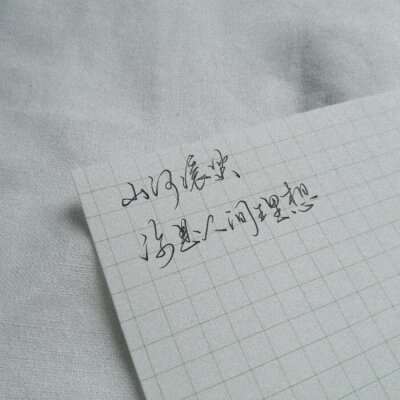 山河滚烫
你是人间理想